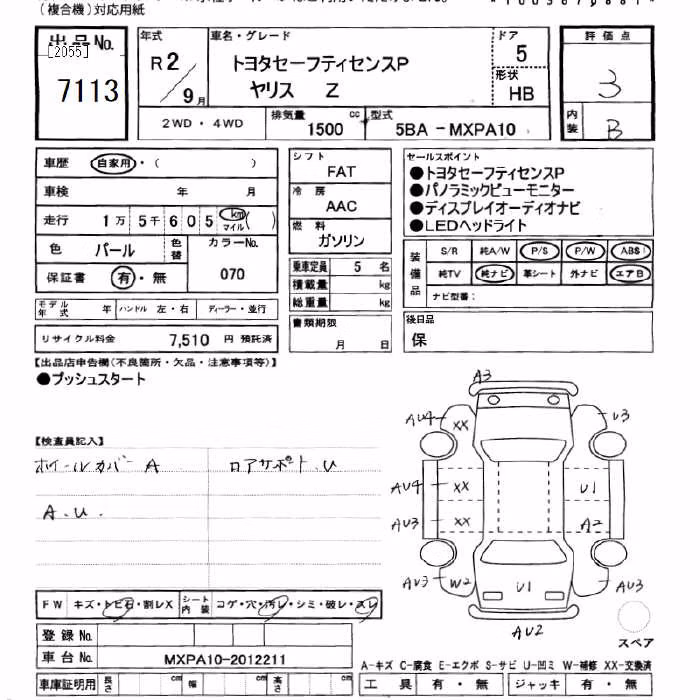 (複合機)対応用紙
出品No.
[2055]
7113
年式
R2
9月
車名・グレード
トヨタセーフティセンスP
ヤリス Z
ドア
5
形状
HB
評価点
3
内装
B
2WD・4WD
排気量
1500 cc
型式
5BA-MXPA10
車歴 自家用・( )
車検 年 月
走行 1万 5千 6 0 5 km マイル ( )
色 パール 色替 カラーNo.
保証書 有・無 070
シフト
FAT
冷房
AAC
燃料
ガソリン
乗車定員 5 名
積載量 kg
総重量 kg
書類期限
月 日
セールスポイント
●トヨタセーフティセンスP
●パノラミックビューモニター
●ディスプレイオーディオナビ
●LEDヘッドライト
装備品
S/R 純A/W P/S P/W ABS
純TV 純ナビ 革シート 外ナビ エアB
ナビ型番:
モデル年式 年 ハンドル 左・右 ディーラー・並行
リサイクル料金 7,510 円 預託済
後日品
保
【出品店申告欄(不良箇所・欠品・注意事項等)】
●プッシュスタート
【検査員記入】
ホイールカバー A ロアサポート.U
A.U.
A3
AU4 XX U3
AU4 XX U1
AU3 XX A2
AU3 W2 U1 AU3
AU2
スペア
FW キズ・トビ石・割レX シート内装 コゲ・穴・汚レ・シミ・破レ・スレ
登録No.
車台No. MXPA10-2012211
A-キズ C-腐食 E-エクボ S-サビ U-凹ミ W-補修 XX-交換済
車庫証明用 長さ cm 幅 cm 高さ cm
工具 有・無 ジャッキ 有・無